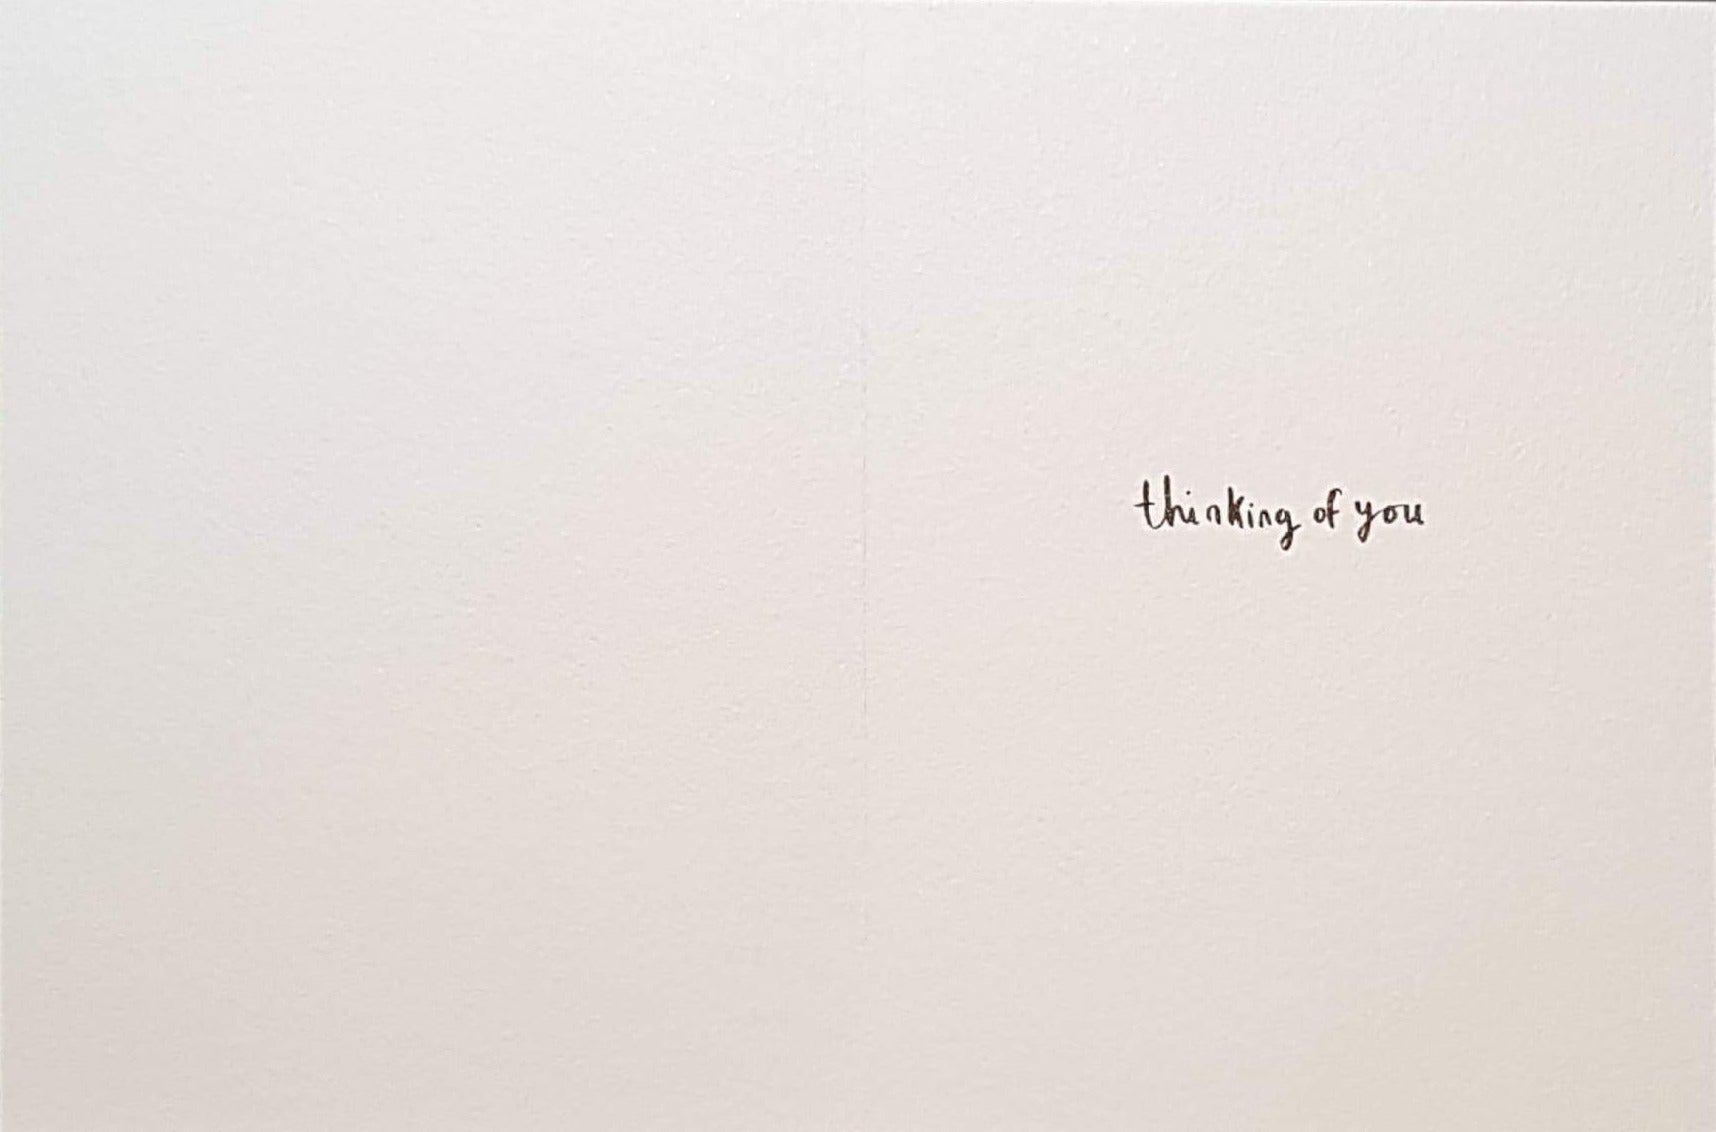 thinking of you